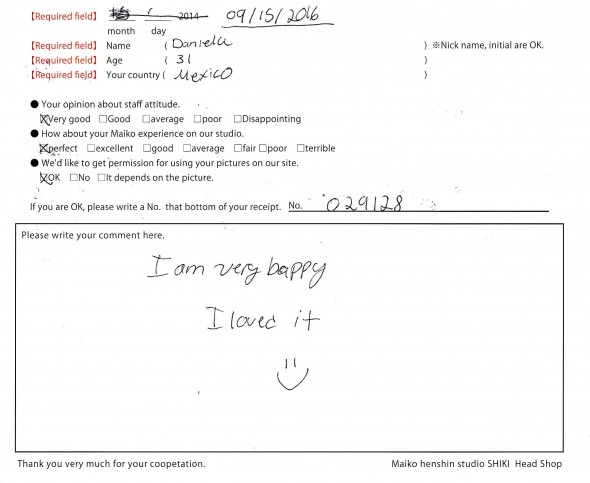 【Required field】 2014 09/15/2016
month day
【Required field】 Name ( Daniela ) ※Nick name, initial are OK.
【Required field】 Age ( 31 )
【Required field】 Your country ( Mexico )
● Your opinion about staff attitude.
☒Very good □Good □average □poor □Disappointing
● How about your Maiko experience on our studio.
☒perfect □excellent □good □average □fair □poor □terrible
● We'd like to get permission for using your pictures on our site.
☒OK □No □It depends on the picture.
If you are OK, please write a No. that bottom of your receipt. No. 029128
Please write your comment here.
I am very happy
I loved it
Thank you very much for your coopetation. Maiko henshin studio SHIKI Head Shop